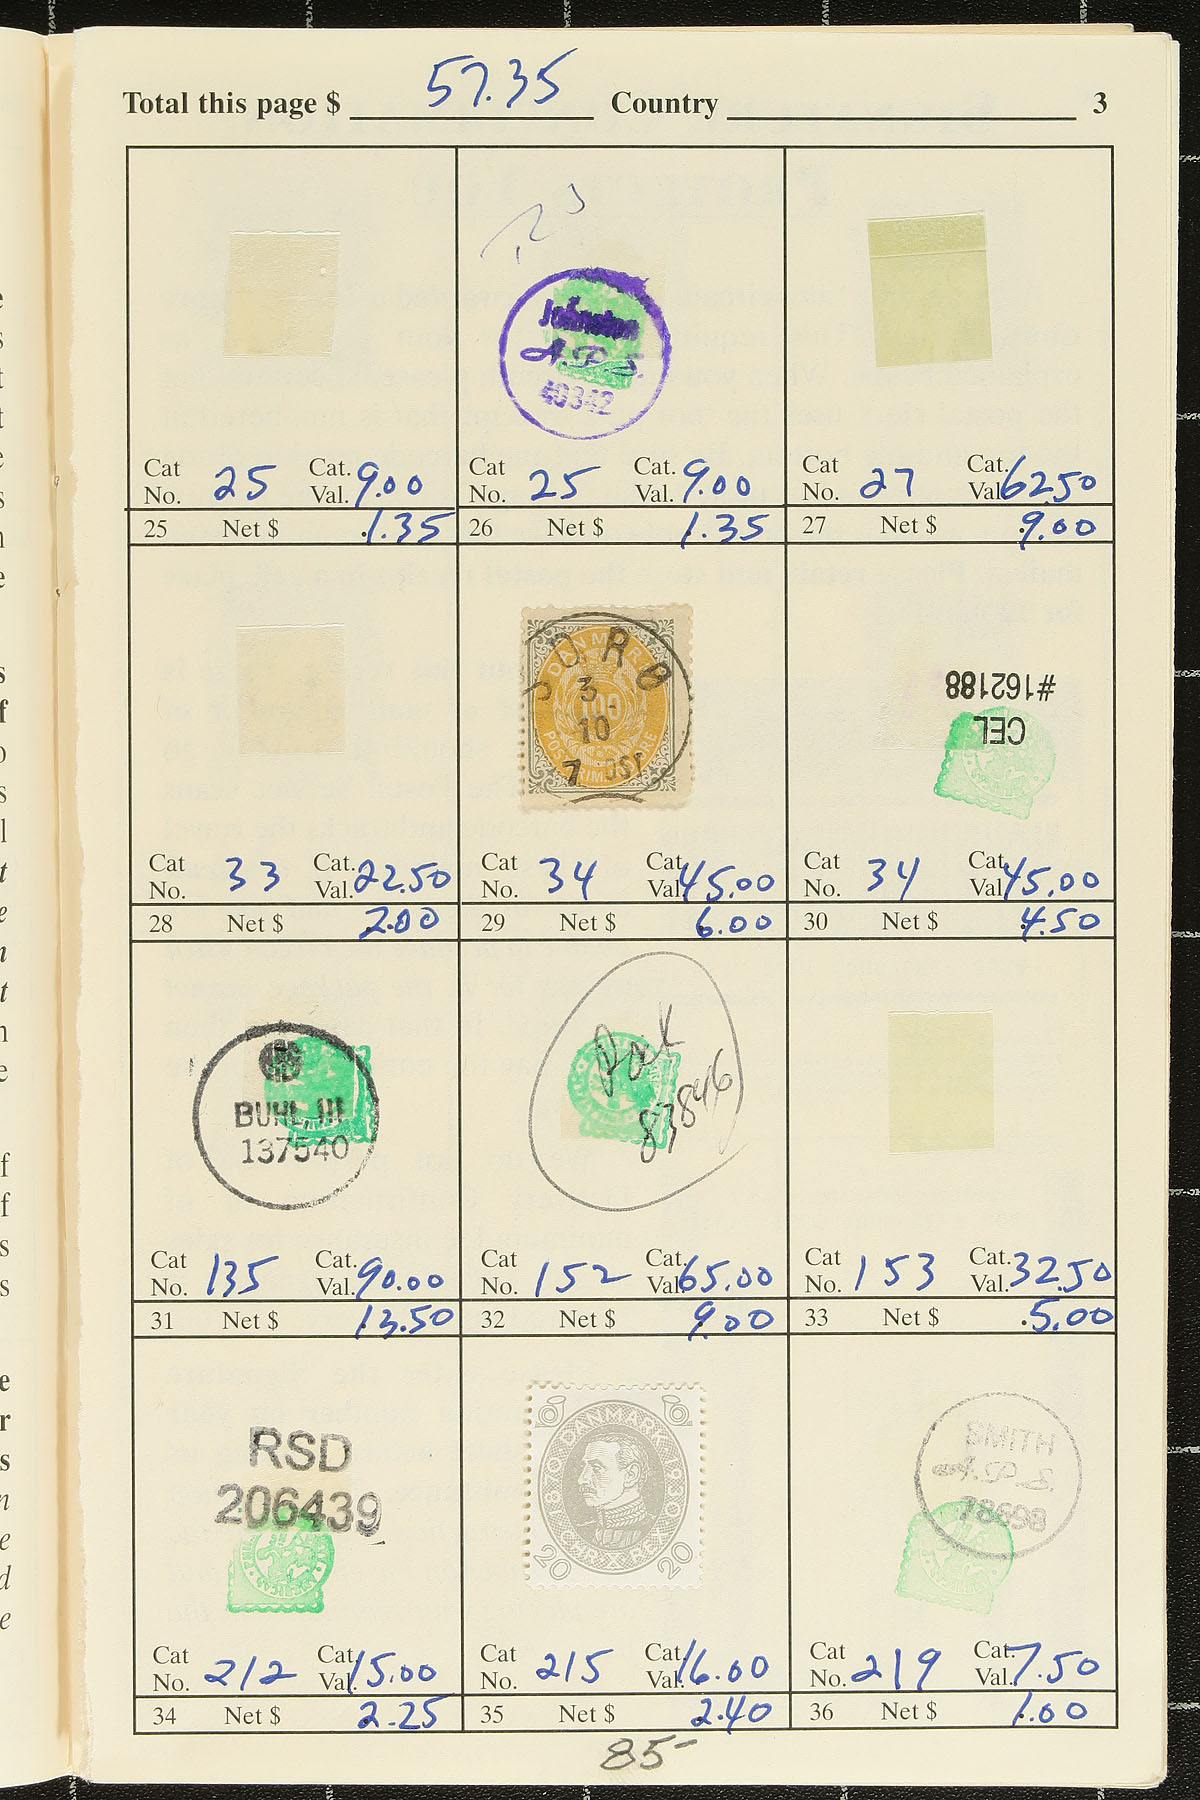 Total this page $ 57.35 Country 3
Johnston
A.P.S.
40342
Cat No. 25 Cat. Val. 9.00
25 Net $ 1.35
Cat No. 25 Cat. Val. 9.00
26 Net $ 1.35
Cat No. 27 Cat. Val. 62.50
27 Net $ 9.00
DANMARK
100
POSTFRIM. ØRE
SORØ
3
10
#162188
CEL
Cat No. 33 Cat. Val. 22.50
28 Net $ 2.00
Cat No. 34 Cat. Val. 45.00
29 Net $ 6.00
Cat No. 34 Cat. Val. 45.00
30 Net $ 4.50
BUHL, III
137540
83846
Cat No. 135 Cat. Val. 90.00
31 Net $ 13.50
Cat No. 152 Cat. Val. 65.00
32 Net $ 9.00
Cat No. 153 Cat. Val. 32.50
33 Net $ 5.00
RSD
206439
DANMARK
1870 1930
20 20
SMITH
A.P.S.
78698
Cat No. 212 Cat. Val. 15.00
34 Net $ 2.25
Cat No. 215 Cat. Val. 16.00
35 Net $ 2.40
Cat No. 219 Cat. Val. 7.50
36 Net $ 1.00
85-